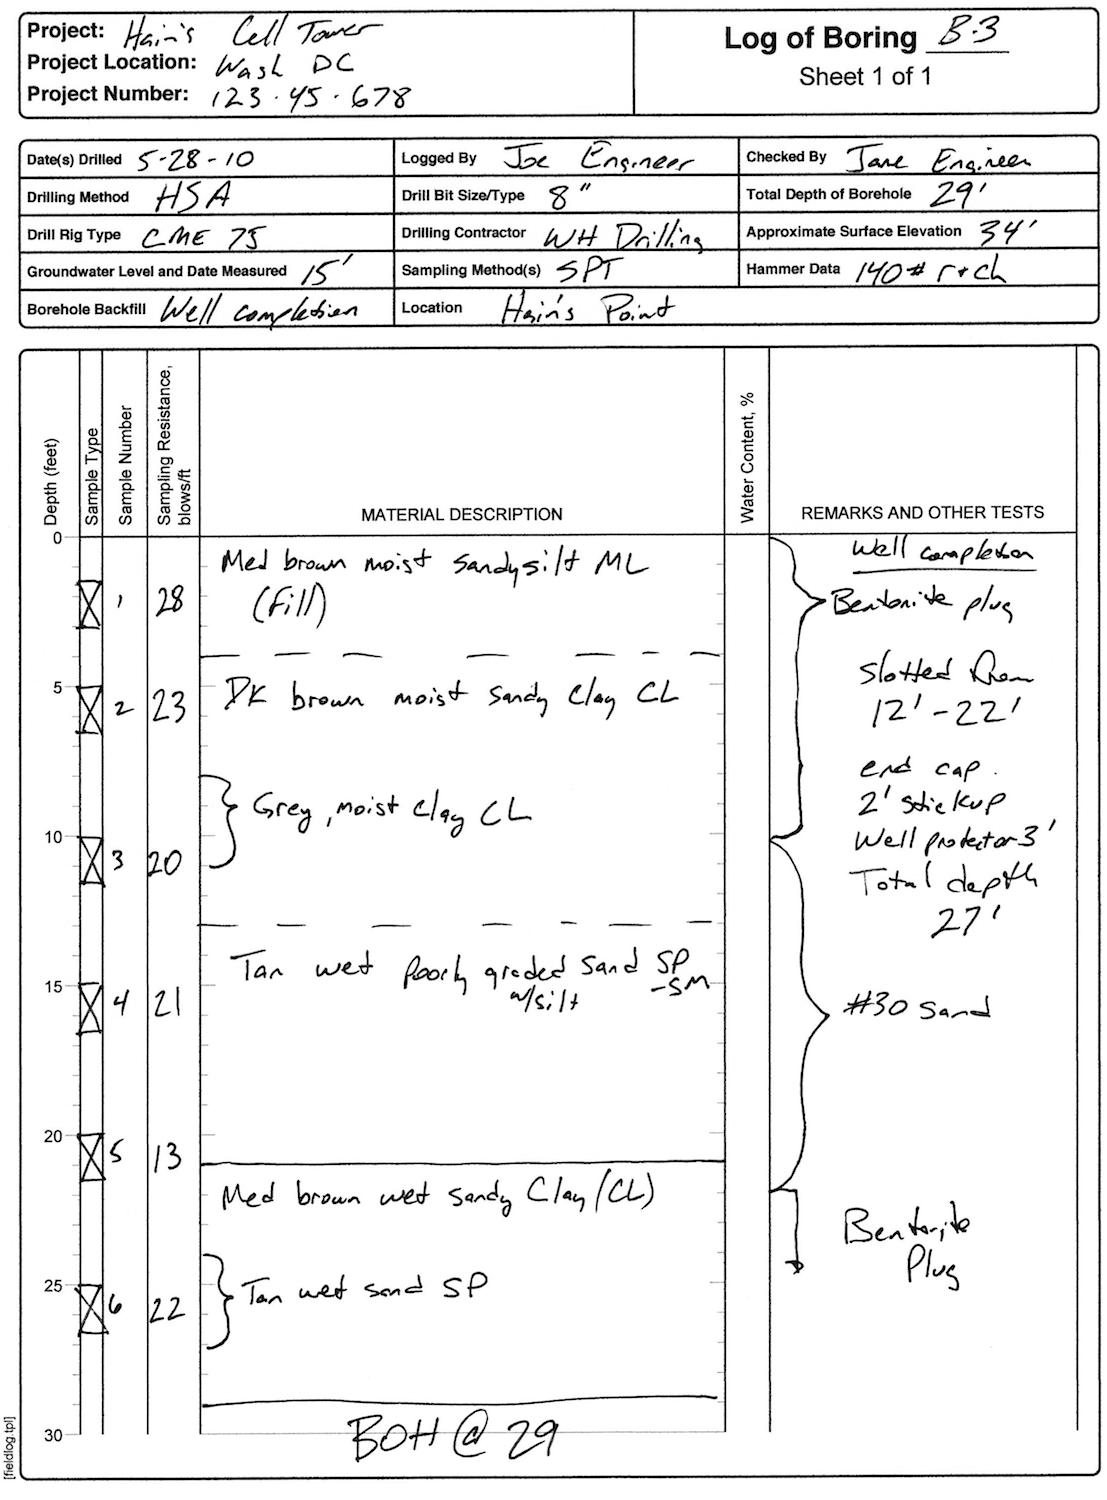 Project: Hain's Cell Tower
Project Location: Wash DC
Project Number: 123-45-678
Log of Boring B-3
Sheet 1 of 1
Date(s) Drilled 5-28-10
Logged By Joe Engineer
Checked By Jane Engineer
Drilling Method HSA
Drill Bit Size/Type 8"
Total Depth of Borehole 29'
Drill Rig Type CME 75
Drilling Contractor WH Drilling
Approximate Surface Elevation 34'
Groundwater Level and Date Measured 15'
Sampling Method(s) SPT
Hammer Data 140# r+ch
Borehole Backfill Well completion
Location Hain's Point
Depth (feet)
Sample Type
Sample Number
Sampling Resistance,
blows/ft
MATERIAL DESCRIPTION
Water Content, %
REMARKS AND OTHER TESTS
0
Med brown moist sandy silt ML
(Fill)
1 28
5
DK brown moist sandy Clay CL
2 23
Grey, moist Clay CL
10
3 20
Tan wet poorly graded Sand SP
w/silt -SM
15
4 21
20
5 13
Med brown wet sandy Clay (CL)
25
Tan wet sand SP
6 22
30
BOH @ 29
Well completion
Bentonite plug
Slotted
12'-22'
end cap.
2' stickup
Well protector 3'
Total depth
27'
#30 sand
Bentonite
Plug
[fieldlog.tpl]